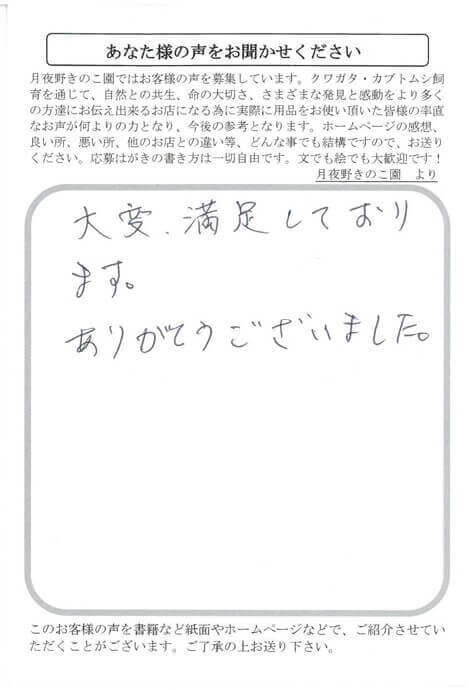 あなた様の声をお聞かせください
月夜野きのこ園ではお客様の声を募集しています。クワガタ・カブトムシ飼
育を通じて、自然との共生、命の大切さ、さまざまな発見と感動をより多く
の方達にお伝え出来るお店になる為に実際に用品をお使い頂いた皆様の率直
なお声が何よりの力となり、今後の参考となります。ホームページの感想、
良い所、悪い所、他のお店との違い等、どんな事でも結構ですので、お送り
ください。応募はがきの書き方は一切自由です。文でも絵でも大歓迎です！
月夜野きのこ園　より
大変、満足しており
ます。
ありがとうございました。
このお客様の声を書籍など紙面やホームページなどで、ご紹介させてい
ただくことがございます。ご了承の上お送り下さい。